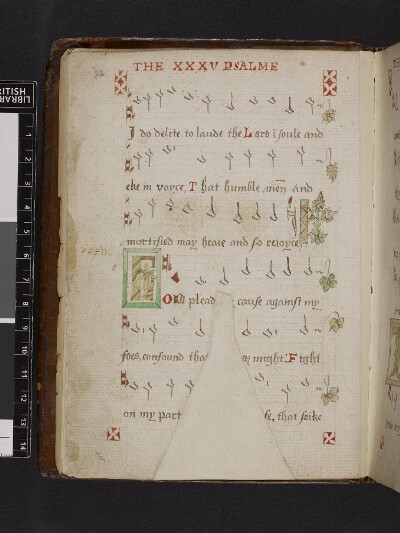 THE XXXV PSALME
I do delite to laude the Lord ī soule and
eke in voyce, That humble meñ and
mortified may heare and so reioyce
Lord plead cause against my
foes, confound tha might. Fight
on my part se, that seke
LIBRARY
BRITISH
1
2
3
4
5
6
7
8
9
10
11
12
13
14